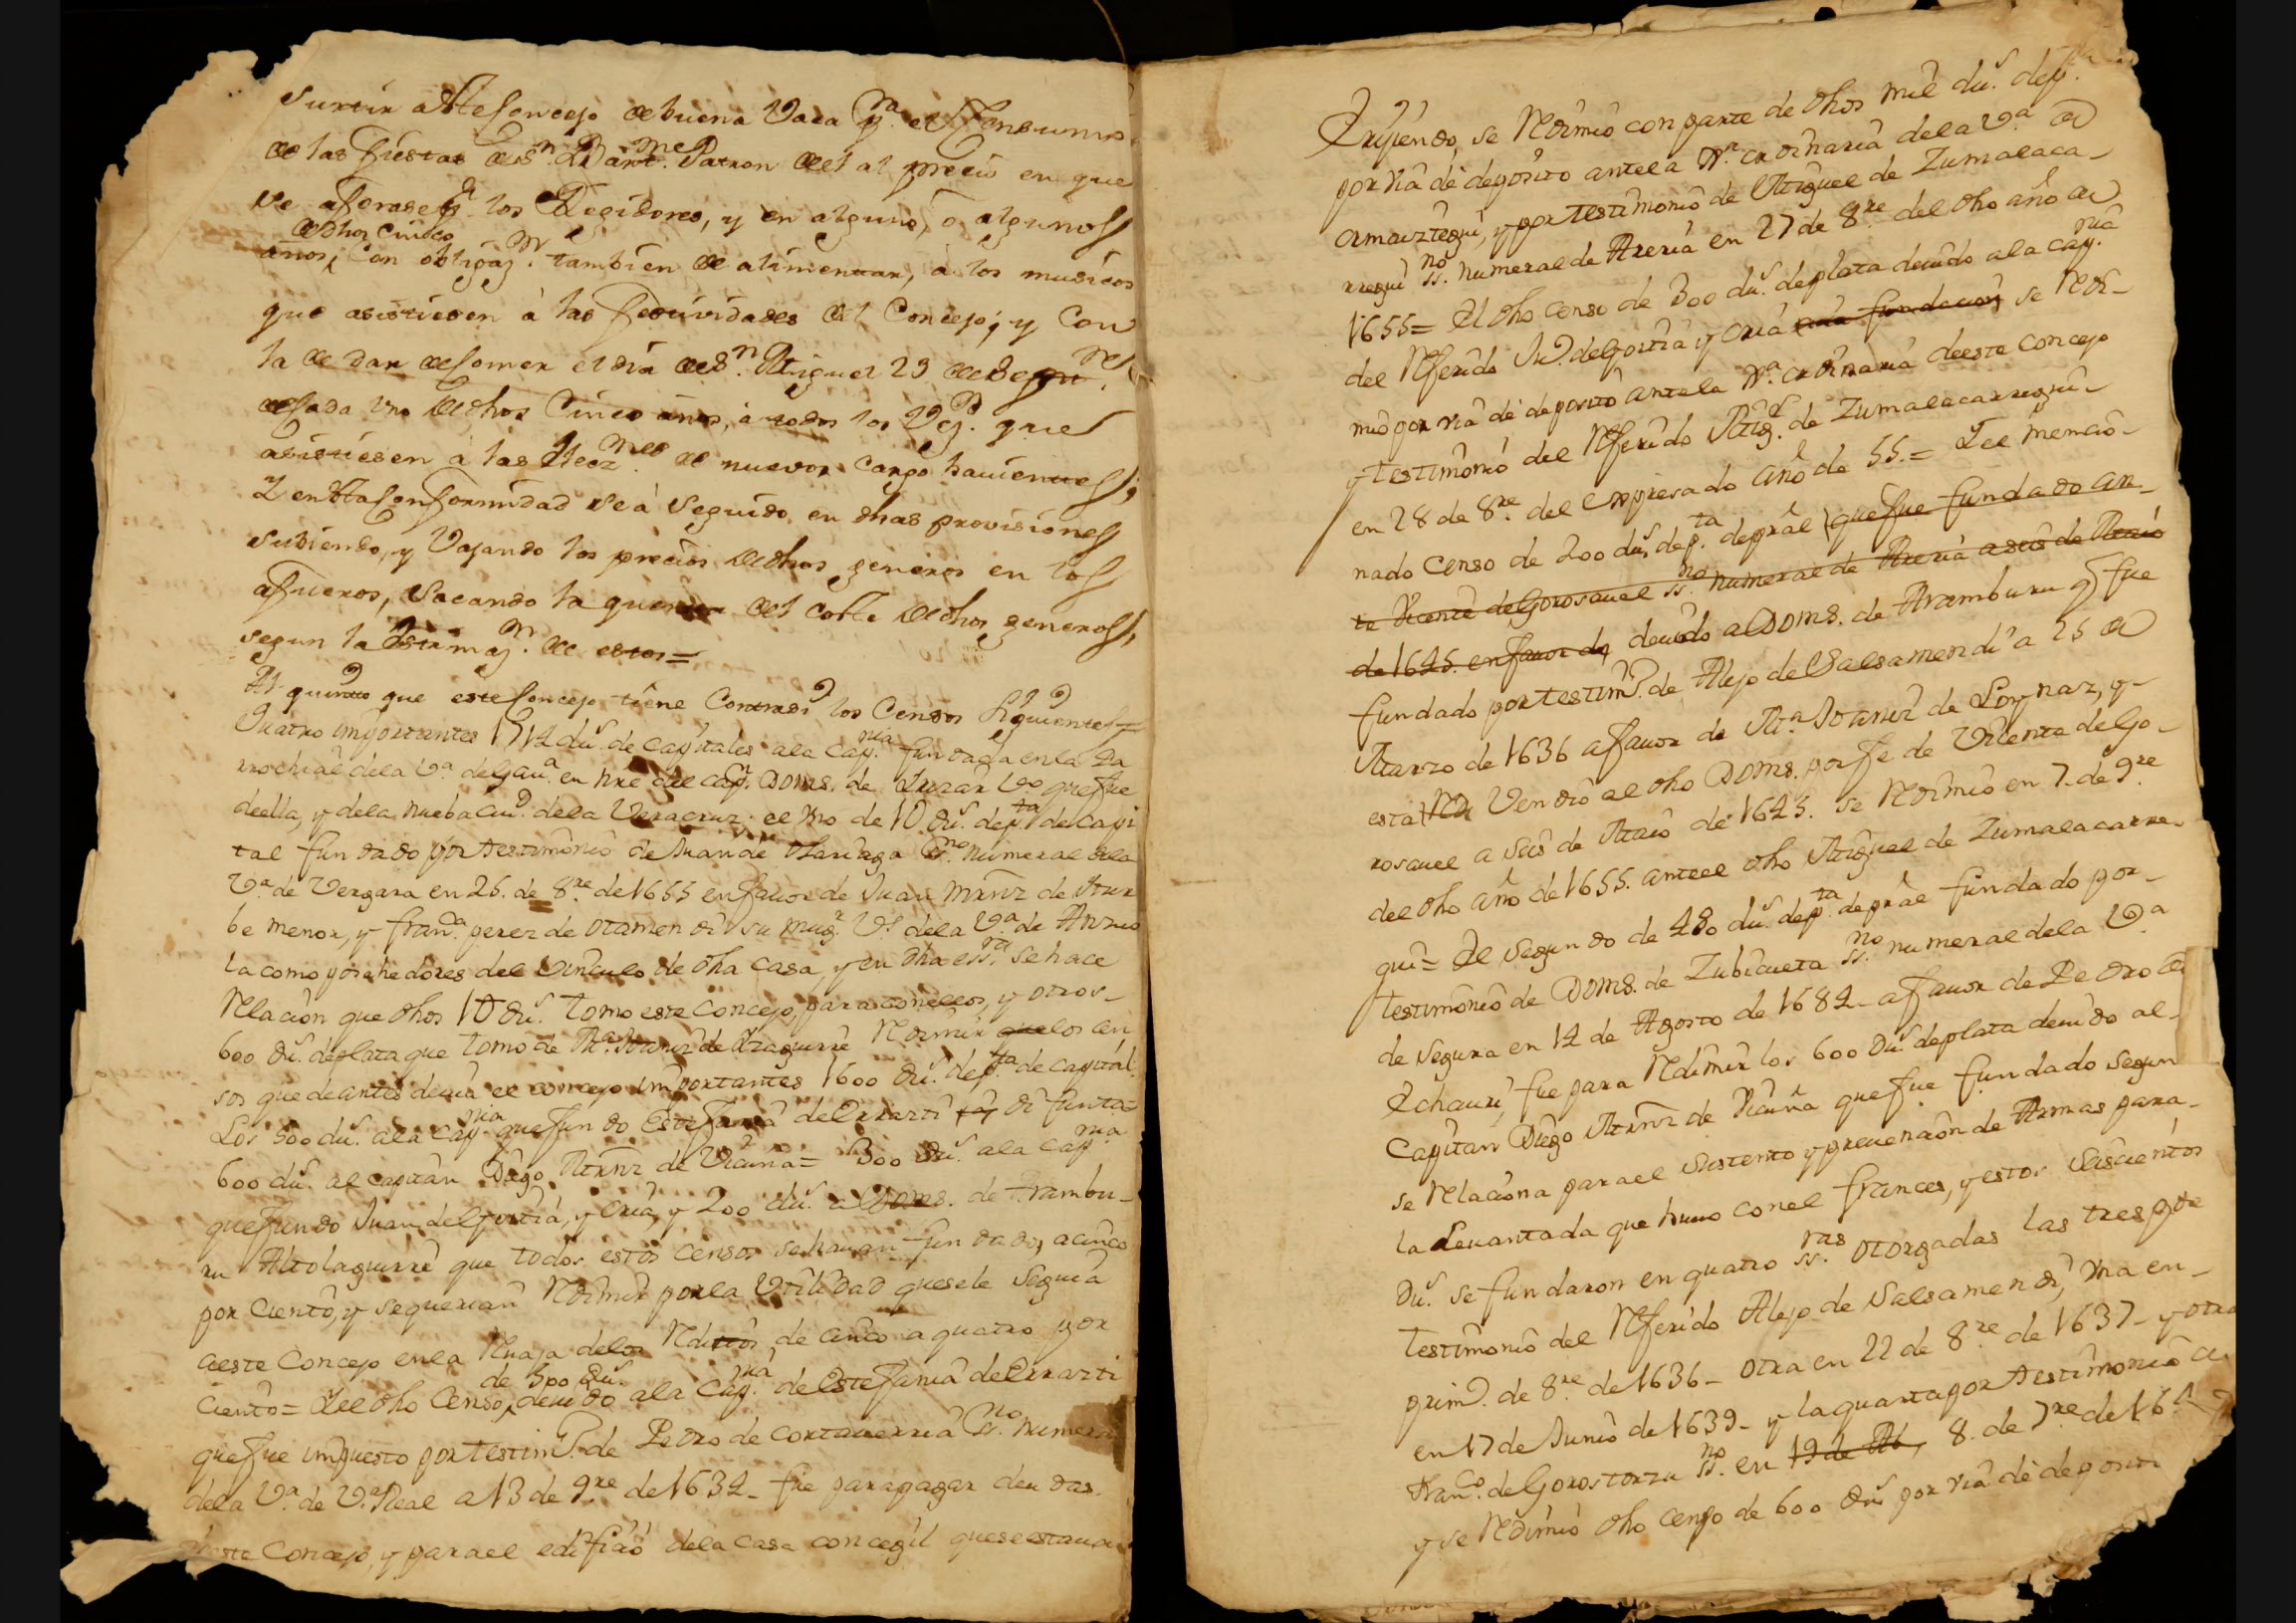 surtir a este Concejo de buena Vaca pa. el Consumo
de las fiestas de Sn. Barme. Patron del al precio en que
se aforase pr. los Regidores, y en alguno, o algunos
de dhos cinco
años, con obligazn. tambien de alimentar, à los musicos
que asistiesen à las festividades del Concejo; y con
la de dar de Comer el dia de Sn. Miguel 29 de Sepre.
de Cada uno de dhos Cinco años, à todos los Vezs. que
asistiesen à las Elecznes. de nuevos Cargo havientes;
Y en esta Conformidad se à seguido en dhas provisiones
subiendo, y Vajando los precios de dhos generos en los
afueros, sacando la quenta del coste de dhos generos,
segun la estimazn. de estos=
Al quinto que este Concejo tiene Contra si los Censos siguientes=
Quatro importantes 1714 dus. de Capitales a la Capnia. fundada en la Pa
rrochial de la Va. de Gava. en nre del capn. Doms. de Yrizar Vo que fue
de ella, y de la nueba ciud. de la Veracruz. el uno de 10 dus. de pta. de Capi
tal fundado por testimonio de Juan de Olariaga Ssno. numeral de la
Va. de Vergara en 26. de 8re. de 1655 en favor de Juan Mrnz de Ytur
be menor, y franca. perez de Otamendi su mugr. Vs. de la Va. de Anzuo
la como poshedores del Vinculo de dha casa, y en dha essra. se hace
Relacion que dhos 10 dus. tomo este Concejo, para con ellos, y otros
600 dus. de plata que tomo de Ma. Mrnz de Yzaguirre Redimir que los cen
sos que de antes devia el concejo importantes 1600 dus. de pta. de capital.
Los 500 dus. a la Capnia. que fundo Estefania de Errazti difunta=
600 dus. al capitan Diego Mrnz de Vicuña= 300 dus. a la Capnia.
que fundo Juan de Goitia, y Cria, y 200 dus. a Doms. de Arambu-
ru Altolaguirre que todos estos censos se havian fundado, a cinco
por ciento, y se querian Redimir por la Utilidad que se le seguia
a este Concejo en la Revaja de los Reditos de cinco a quatro por
de 500 dus.
ciento= Y el dho Censo, devido a la Capnia. de Estefania de Errazti
que fue impuesto por testimo. de Pedro de Cortaverria Ssno. numeral
de la Va. de Va. Real a 13 de 9re de 1634- fue para pagar deudas
de este Concejo, y para el edificio de la Casa concegil que se estava
Erigiendo, se Redimio con parte de dhos mil dus. de pta.
por via de deposito ante la Jusa. ordinaria de la Va. de
Ormaiztegui, y por testimonio de Miguel de Zumalaca-
rregui ssno. numeral de Areria en 27 de 8re. del dho año de
1655= El dho censo de 300 dus. de plata devido a la Capnia.
del Referido Juo. de Goitia y Cria cuia fundacion se Redi-
mio por via de deposito ante la Jusa. ordinaria de este Concejo
y testimonio del Referido Migl. de Zumalacarregui-
en 28 de 8re. del expresado año de 55.= Y el mencio-
nado Censo de 200 dus. de pta. de pral que fue fundado an-
te Vicente de Gorosavel ssno. numeral de Areria a seis de Maio
de 1645. en favor de devido a Doms. de Aramburu q fue
fundado por testimo. de Alejo de Salsamendi a 25 de
Marzo de 1636 a favor de Ma. Mrnz de Loynaz, y
esta Vendio al dho Doms. por fe de Vicente de Go-
rosavel a seis de Maio de 1645. se Redimio en 7. de 9re
del dho año de 1655. ante el dho Miguel de Zumalacarre-
gui= El Segundo de 480 dus. de pta. de pral fundado por
testimonio de Doms. de Zubicueta ssno. numeral de la Va.
de Segura en 14 de Agosto de 1684- a favor de Pedro de
Echaurj, fue para Redimir los 600 dus. de plata devido al
Capitan Diego Mrnz de Vicuña que fue fundado segun
se Relaciona para el sustento y prevencion de Armas para
la Levantada que huvo con el frances, y estos seiscientos
Dus. se fundaron en quatro ssras. otorgadas las tres por
testimonio del Referido Alejo de Salsamendi, una en
primo. de 8re. de 1636- otra en 22 de 8re de 1637- y otra
en 17 de Junio de 1639- y la quarta por testimonio de
Franco. de Gorostorzu ssno. en 19 de Ab, 8. de 7re de 164
y se Redimio dho Censo de 600 dus. por via de deposito